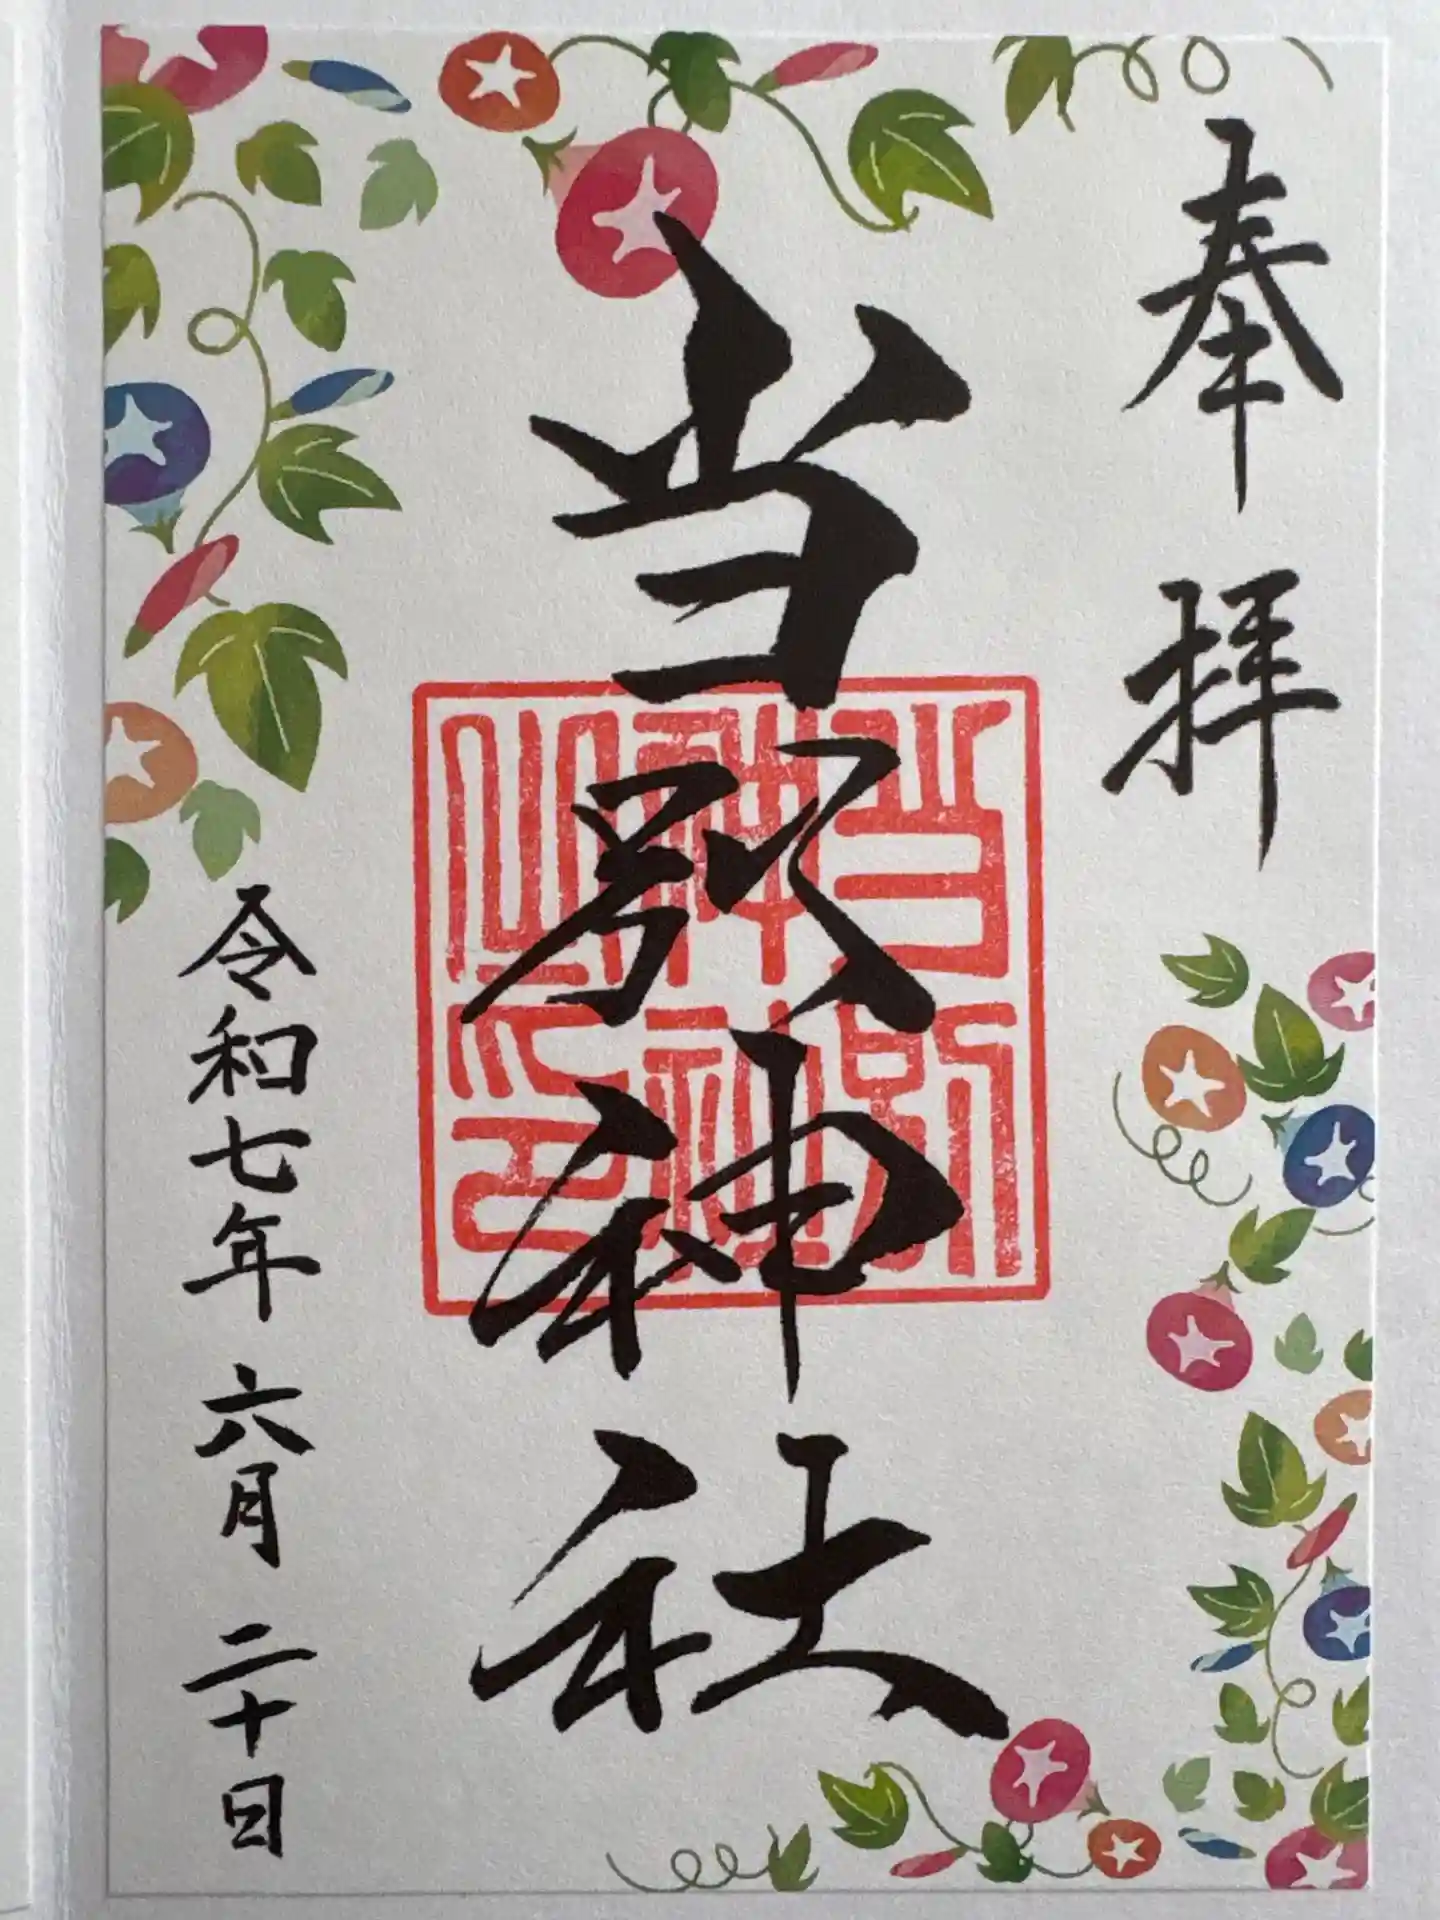 奉拝
当別神社
当別
神社
之印
令和七年 六月 二十日